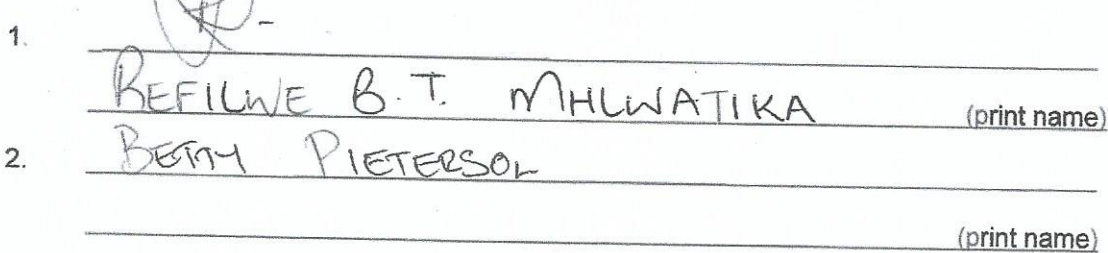 1.
REFILWE B.T. MHLWATIKA (print name)
2. BETTY PIETERSOL
(print name)